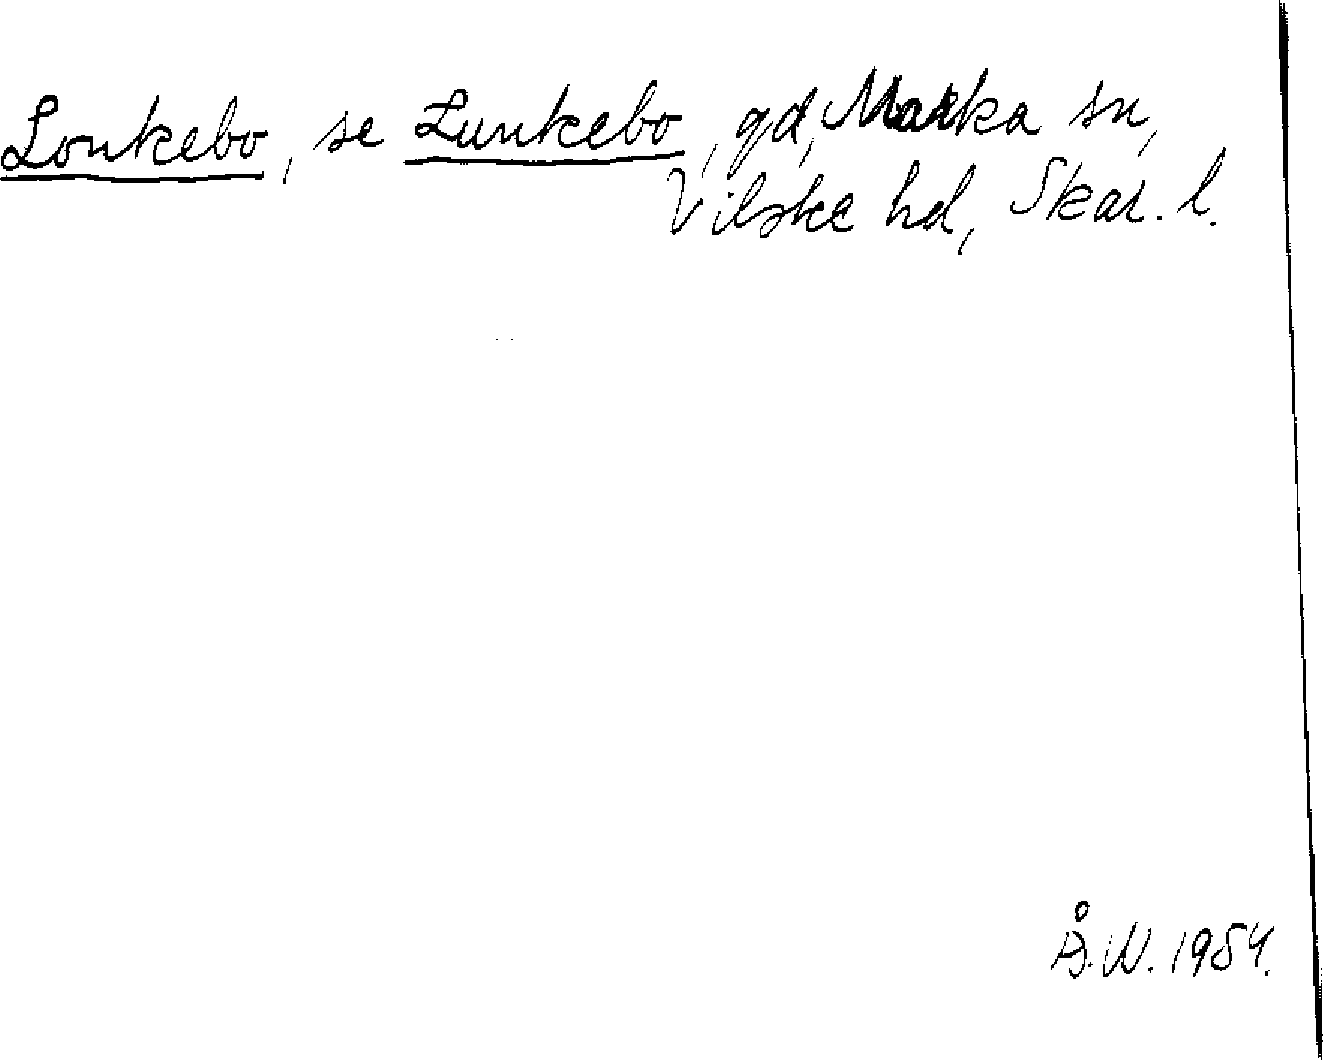 Lonkebo, se Lunkebo, gd, Marka sn,
Vilske hd, Skar. l.
Å.W. 1954.